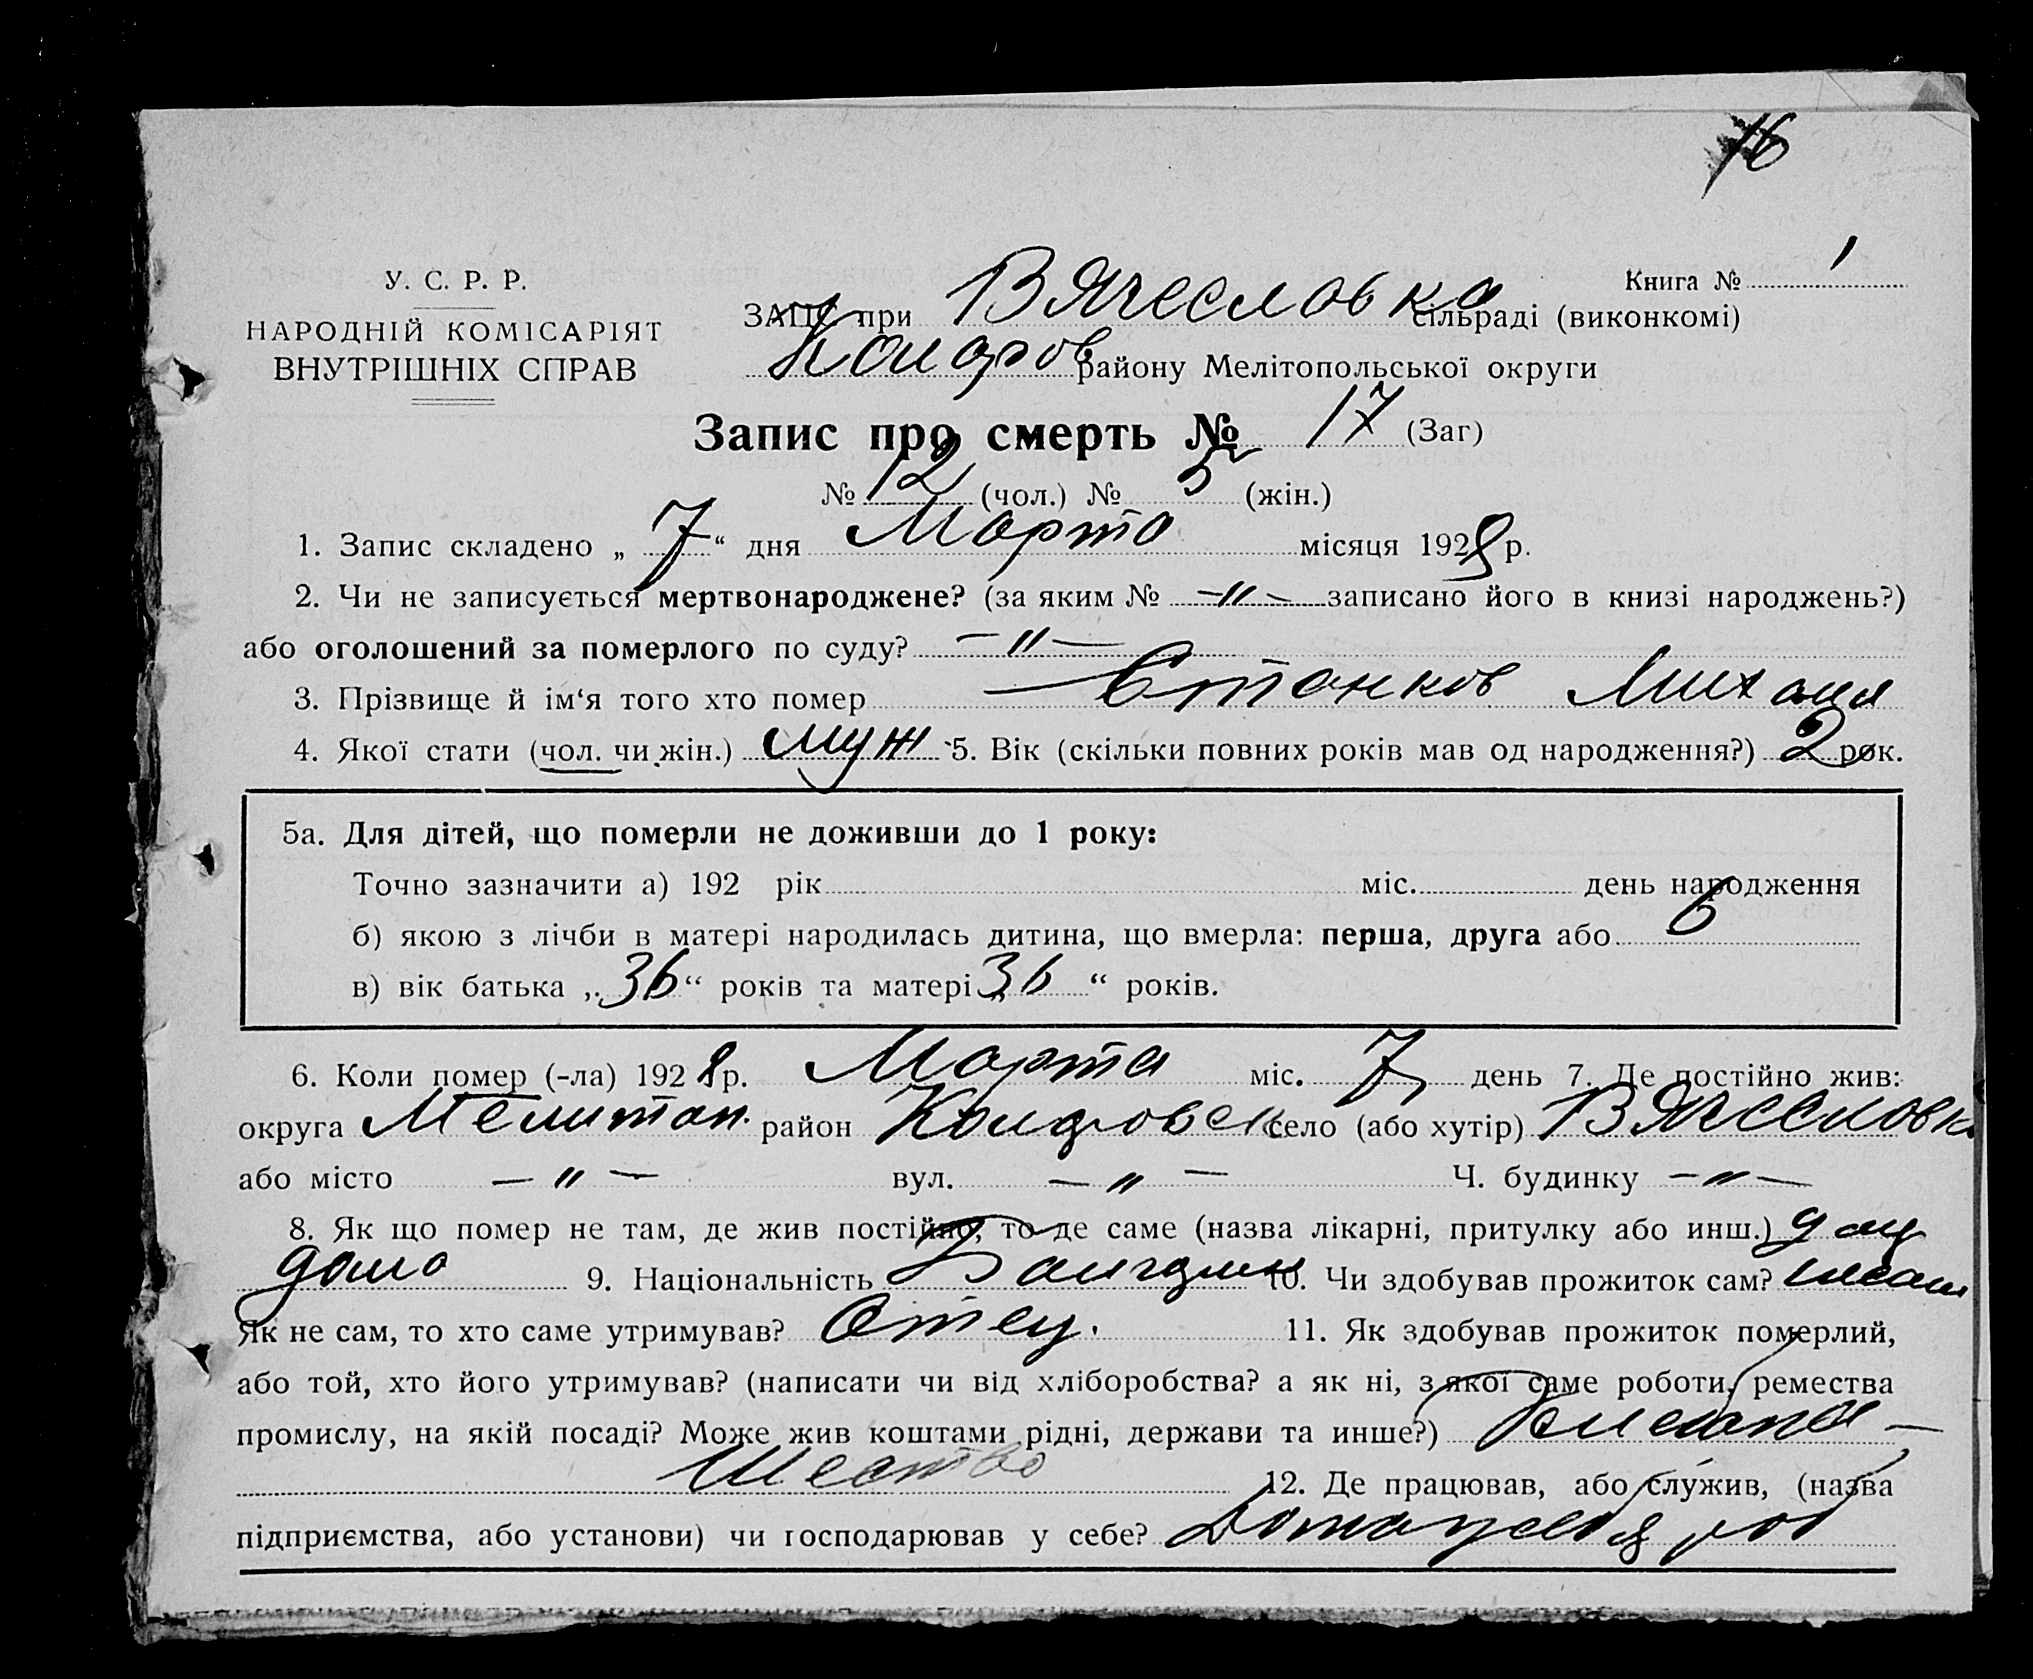 16
У. С. Р. Р.
НАРОДНІЙ КОМІСАРІЯТ
ВНУТРІШНІХ СПРАВ
Книга № 1
ЗАПИС при Вячесловка сільраді (виконкомі)
району Мелітопольської округи
Запис про смерть № 17 (Заг)
№ 12 (чол.) № 5 (жін.)
1. Запис складено „ 7 “ дня Марта місяця 1928 р.
2. Чи не записується мертвонароджене? (за яким № —"— записано його в книзі народжень?)
або оголошений за померлого по суду? —"—
3. Прізвище й ім‘я того хто помер Станков Михаил
4. Якої стати (чол. чи жін.) муж 5. Вік (скільки повних років мав од народження?) 2 рок.
5а. Для дітей, що померли не доживши до 1 року:
Точно зазначити а) 192 рік міс. день народження
б) якою з лічби в матері народилась дитина, що вмерла: перша, друга або 6
в) вік батька „ 36 “ років та матері „ 36 “ років.
6. Коли помер (-ла) 1928 р. Марта міс. 7 день 7. Де постійно жив:
округа Мелитоп. район село (або хутір) Вячесловк
або місто —"— вул. —"— Ч. будинку —"—
8. Як що помер не там, де жив постійно, то де саме (назва лікарні, притулку або инш.)
дома 9. Національність 10. Чи здобував прожиток сам?
Як не сам, то хто саме утримував? Отец. 11. Як здобував прожиток померлий,
або той, хто його утримував? (написати чи від хліборобства? а як ні, з якої саме роботи, ремества
промислу, на якій посаді? Може жив коштами рідні, держави та инше?)
12. Де працював, або служив, (назва
підприємства, або установи) чи господарював у себе?